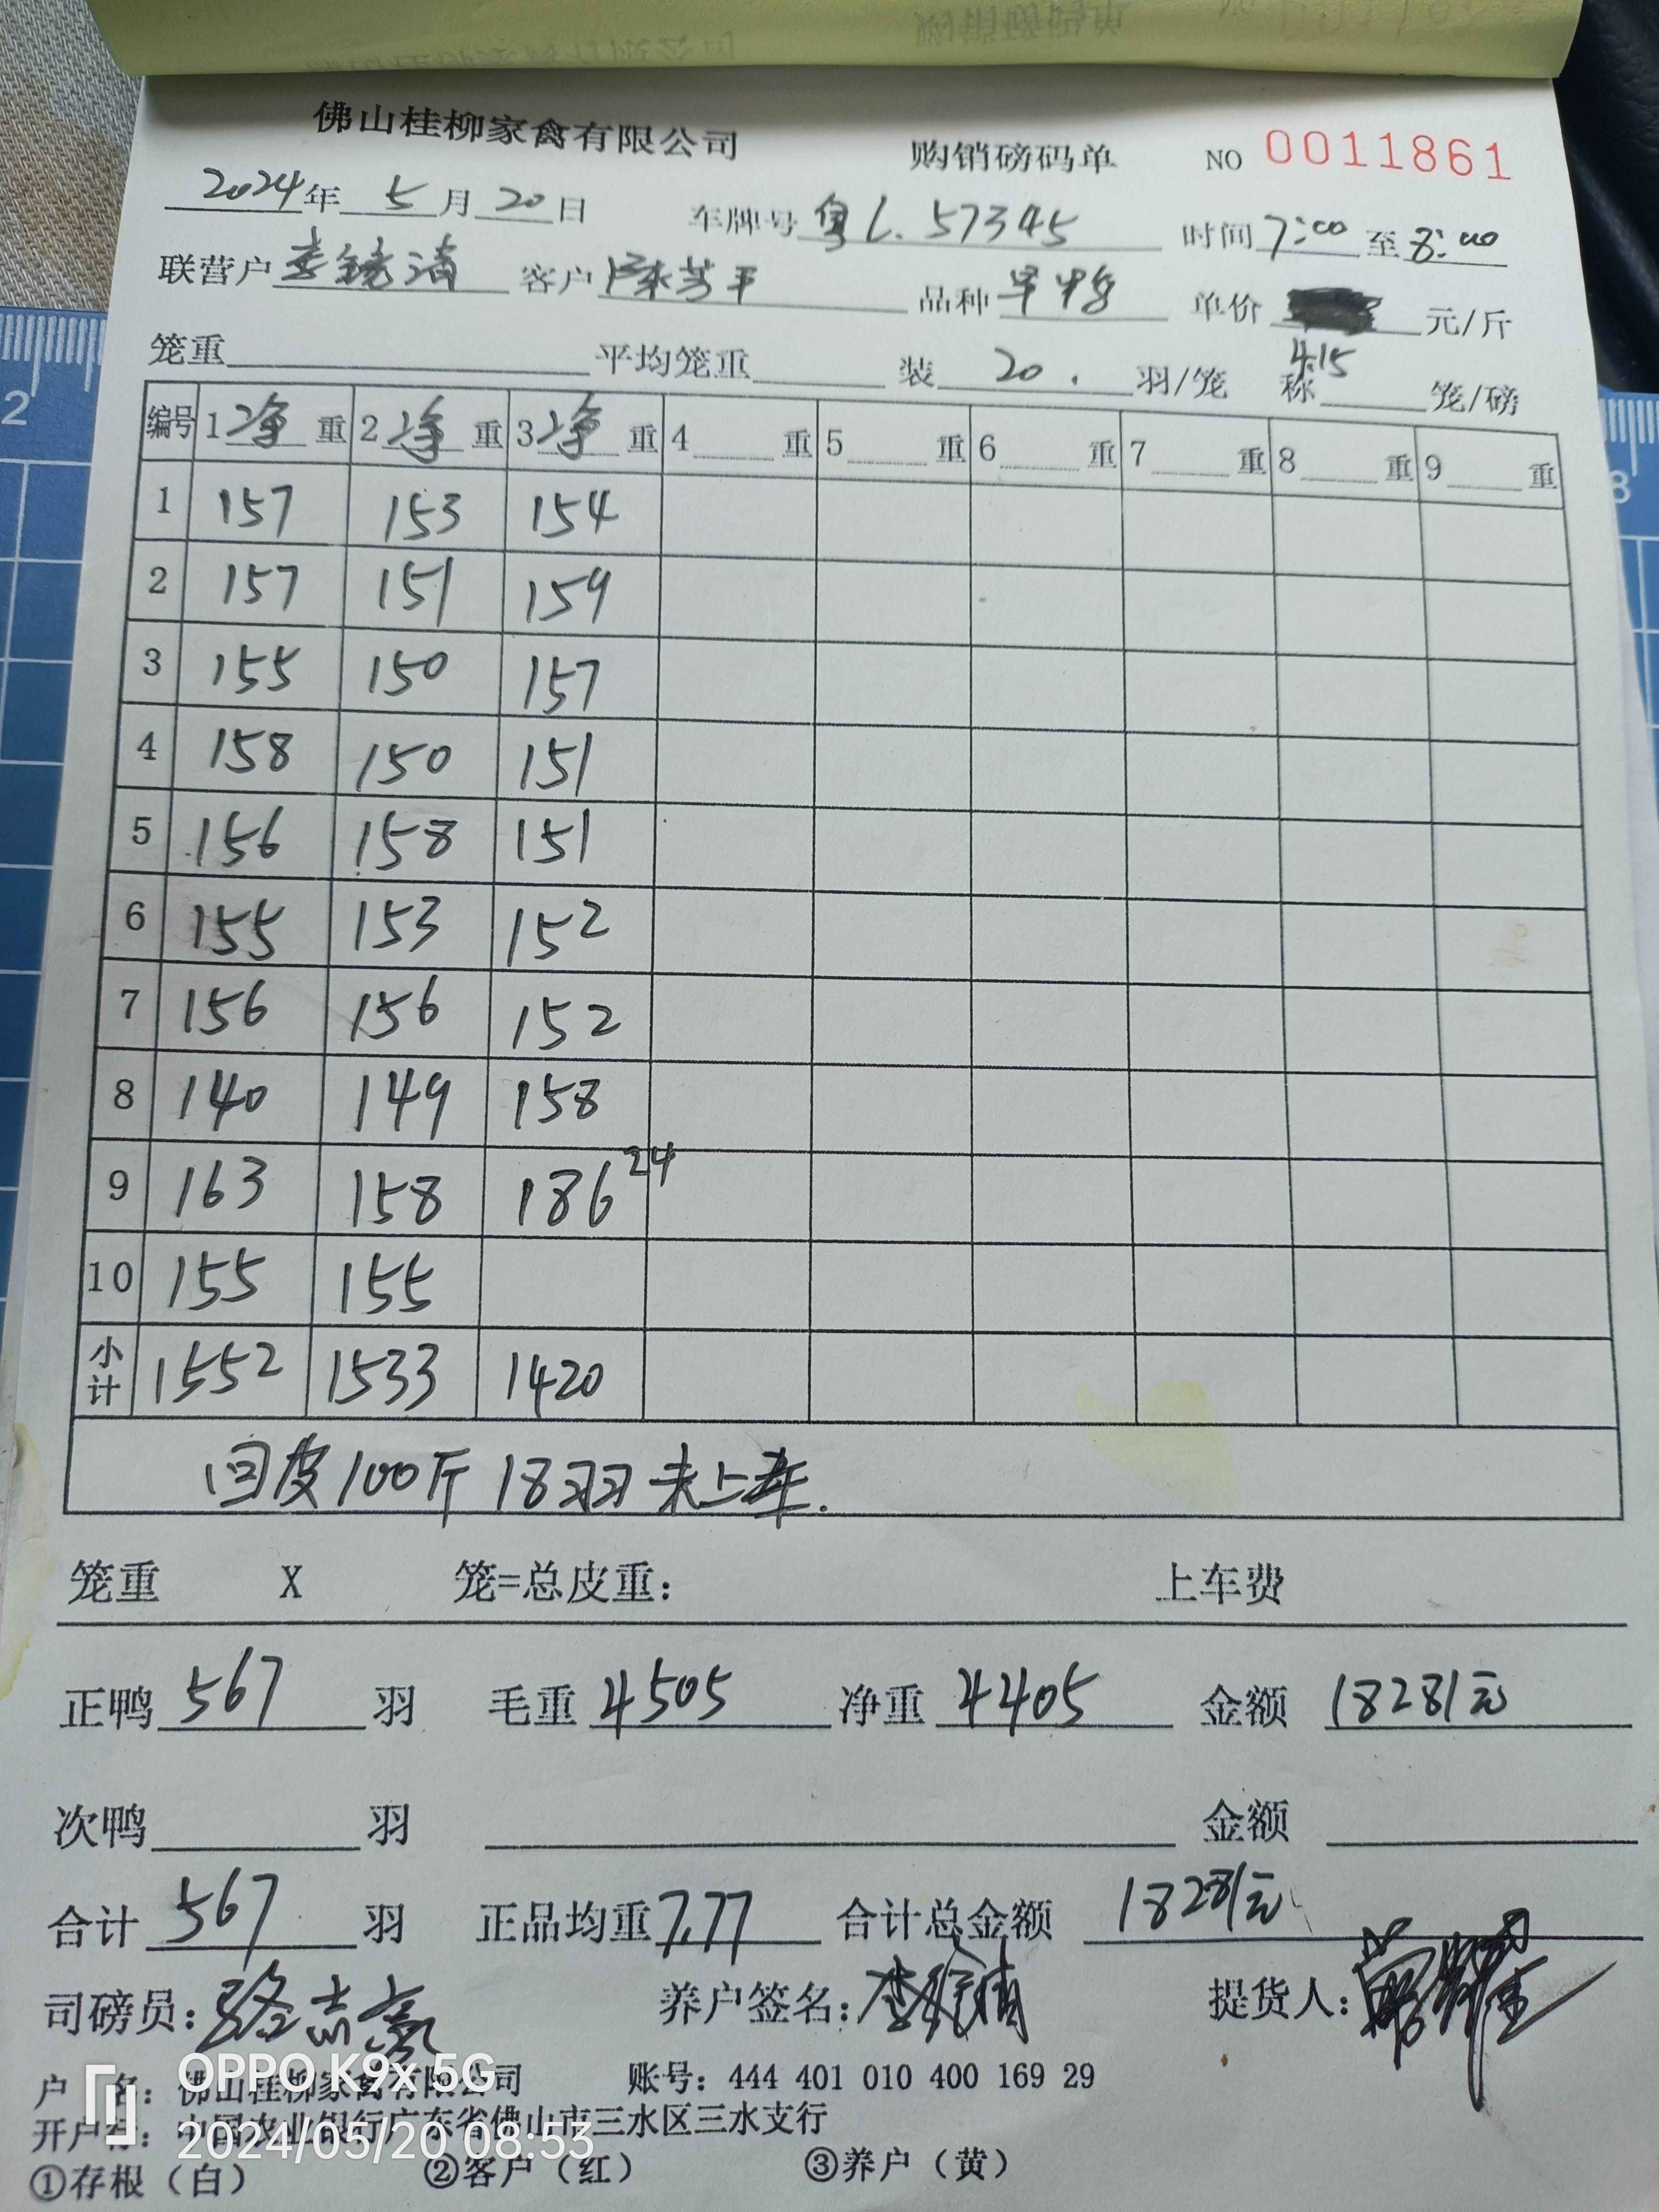 佛山桂柳家禽有限公司 购销磅码单 NO 0011861
2024年 5月 20日 车牌号 粤L.57345 时间 7:00 至 8:00
联营户 李镜清 客户 陈芳平 品种 单价 元/斤
笼重 平均笼重 装 20. 羽/笼 称 笼/磅
4.15
编号 1净重 2净重 3净重 4 重 5 重 6 重 7 重 8 重 9 重
1 157 153 154
2 157 151 159
3 155 150 157
4 158 150 151
5 156 158 151
6 155 153 152
7 156 156 152
8 140 149 158
9 163 158 186 24
10 155 155
小计 1552 1533 1420
回皮100斤 18羽未上车.
笼重 X 笼=总皮重: 上车费
正鸭 567 羽 毛重 4505 净重 4405 金额 18281元
次鸭 羽 金额
合计 567 羽 正品均重 7.77 合计总金额 18281元
司磅员: 骆志豪 养户签名: 李镜清 提货人:
户 名: 佛山桂柳家禽有限公司 账号: 444 401 010 400 169 29
开户行: 中国农业银行广东省佛山市三水区三水支行
①存根（白） ②客户（红） ③养户（黄）
OPPO K9x 5G
2024/05/20 08:53